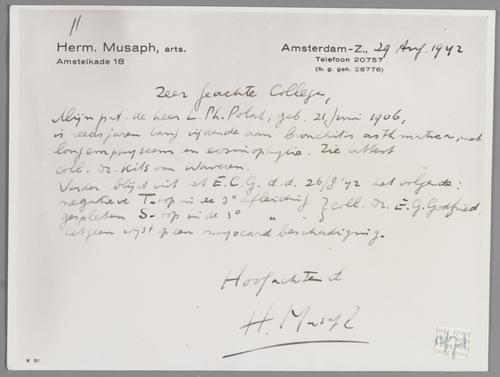 11
Herm. Musaph, arts.
Amstelkade 18
Amsterdam-Z., 29 Aug. 1942
Telefoon 20757
(b. g. geh. 28776)
Zeer geachte Collega,
Mijn pat. de heer L. Ph. Polak, geb. 21 juni 1906,
is reeds jaren lang lijdende aan Bronchitis asthmatica, met
longemphyseem en eosinophylie. Zie attest
coll. Dr. Kits van Waveren.
Verder blijkt uit het E.C.G. d.d. 26/8 '42 het volgende:
negatieve T-top in de 3e afleiding } coll. Dr. E.G. Godfried.
gespleten S-top in de 3e " "
hetgeen wijst op een myocard beschadiging.
Hoogachtend
H. Musaph
K 51